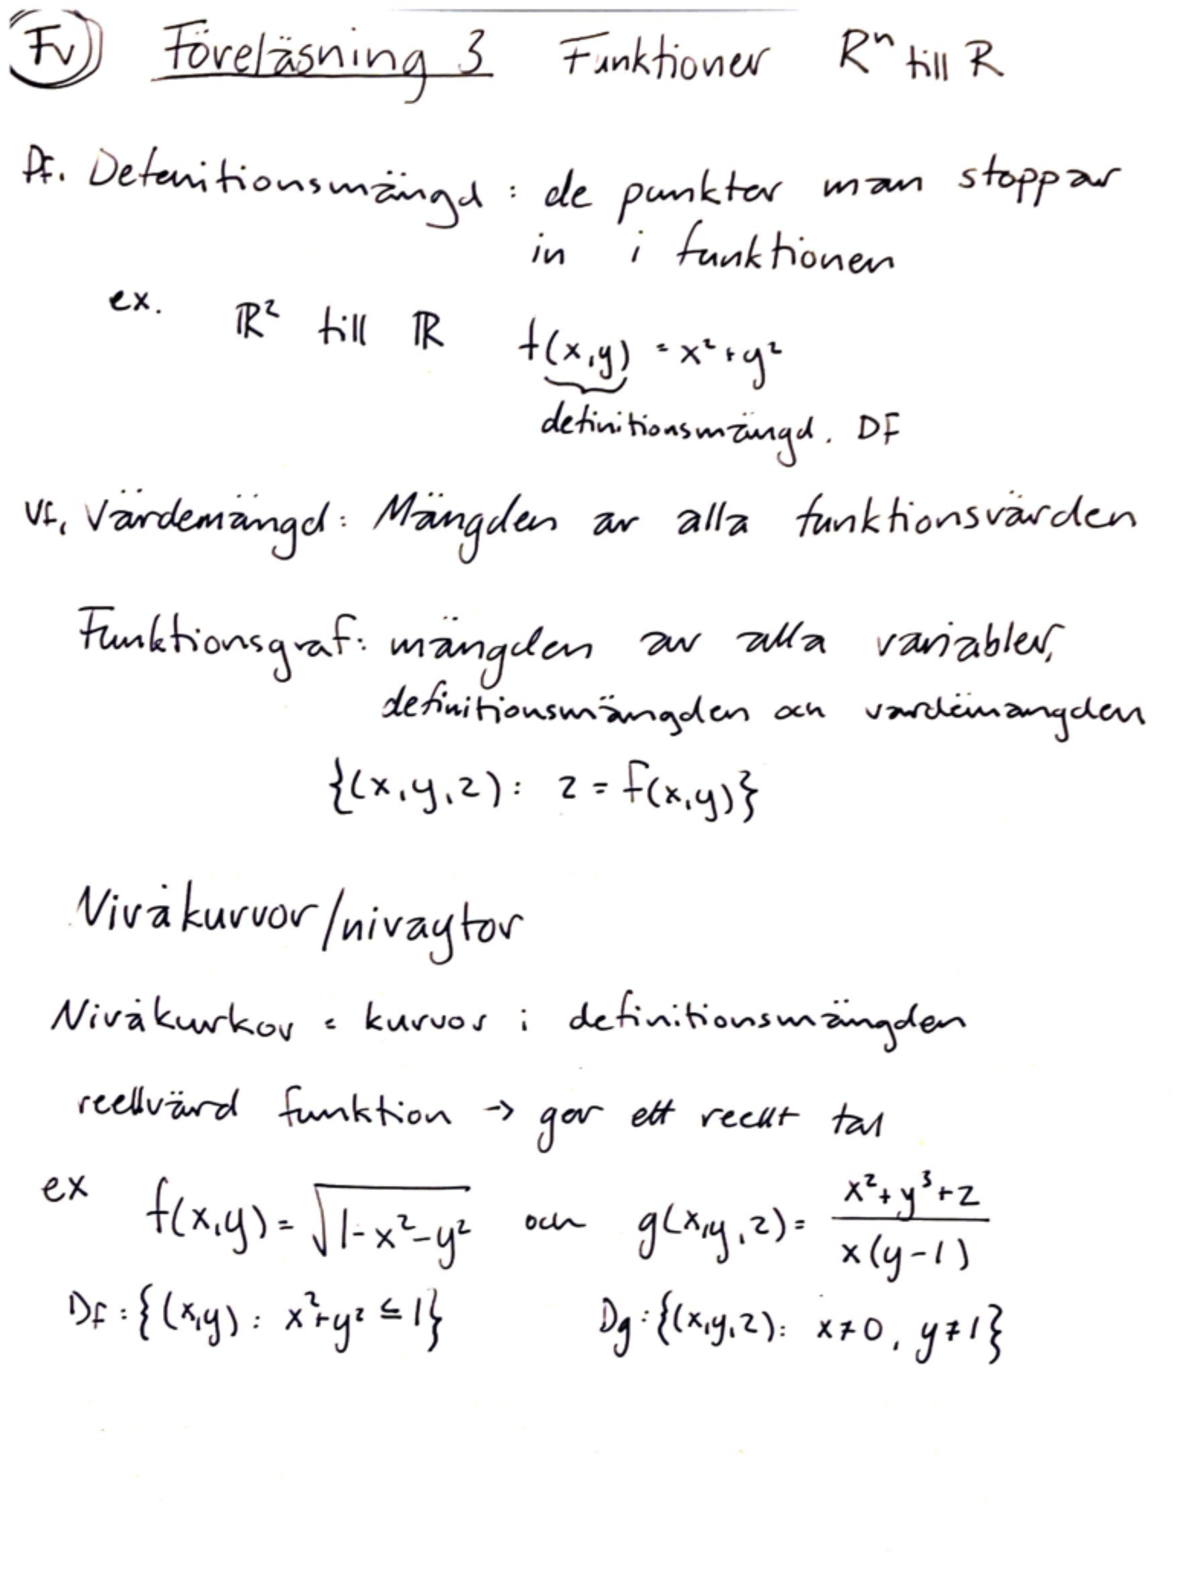 Fv Föreläsning 3 Funktioner Rⁿ till R
Df. Defenitionsmängd : de punkter man stoppar
in i funktionen
ex. ℝ² till ℝ f(x,y) = x²+y²
definitionsmängd. DF
Vf, Värdemängd: Mängden av alla funktionsvärden
Funktionsgraf: mängden av alla variabler,
definitionsmängden och vardëmangden
{(x,y,z): z = f(x,y)}
Nivåkurvor/nivaytor
Nivåkurkov = kurvor i definitionsmängden
reellvärd funktion → ger ett reellt tal
ex f(x,y) = √(1-x²-y²) och g(x,y,z) = (x²+y³+z)/(x(y-1))
Df : {(x,y) : x²+y² ≤ 1} Dg : {(x,y,z): x≠0, y≠1}